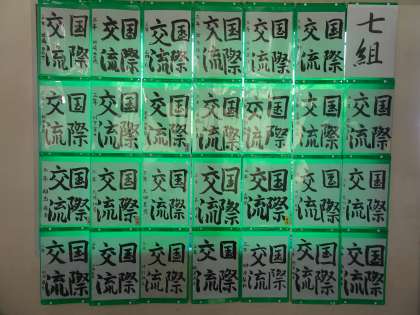 七組
国際
交流
国際
交流
国際
交流
国際
交流
国際
交流
国際
交流
国際
交流
国際
交流
国際
交流
国際
交流
国際
交流
国際
交流
国際
交流
国際
交流
国際
交流
国際
交流
国際
交流
国際
交流
国際
交流
国際
交流
国際
交流
国際
交流
国際
交流
国際
交流
国際
交流
国際
交流
国際
交流